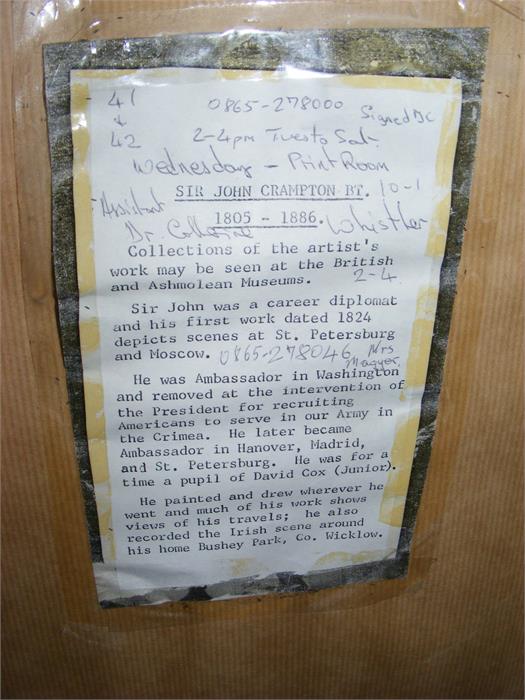 41
0865-278000
Signed DC
↓
42
2-4pm Tues to Sat.
Wednesday - Print Room
SIR JOHN CRAMPTON BT. 10-1
Assistant
1805 - 1886.
Dr. Catherine Whistler
Collections of the artist's
work may be seen at the British
2-4
and Ashmolean Museums.
Sir John was a career diplomat
and his first work dated 1824
depicts scenes at St. Petersburg
and Moscow. 0865-278046 Mrs
Magyer.
He was Ambassador in Washington
and removed at the intervention of
the President for recruiting
Americans to serve in our Army in
the Crimea. He later became
Ambassador in Hanover, Madrid,
and St. Petersburg. He was for a
time a pupil of David Cox (Junior).
He painted and drew wherever he
went and much of his work shows
views of his travels; he also
recorded the Irish scene around
his home Bushey Park, Co. Wicklow.